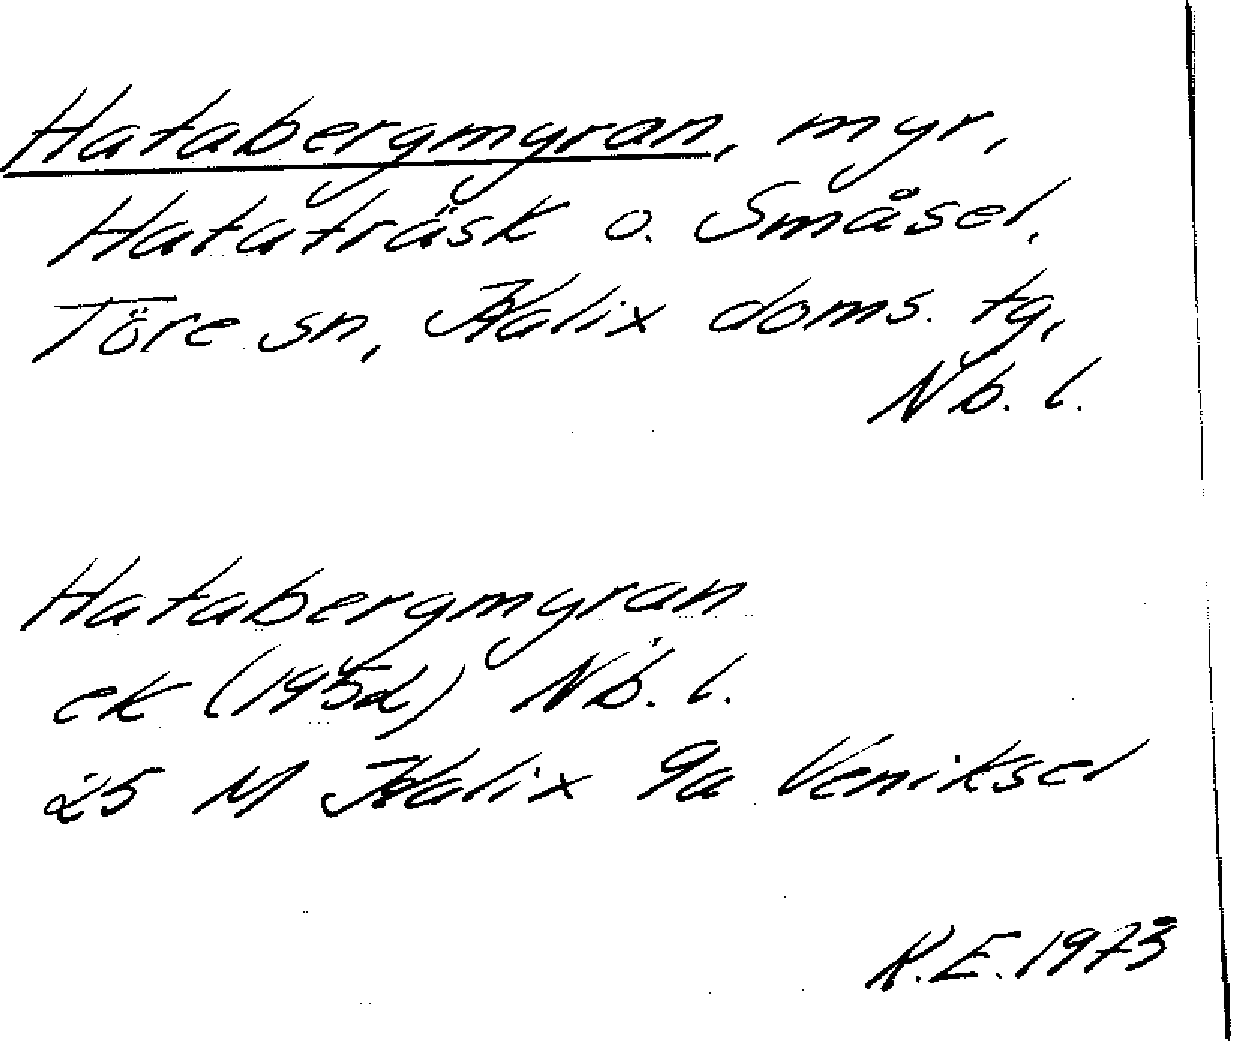 Hatabergmyran, myr,
Hataträsk o. Småsel,
Töre sn, Kalix doms. tg,
Nb. l.
Hatabergmyran
ek (1952) Nb. l.
25 M Kalix 9a Veniksel
K.E. 1973